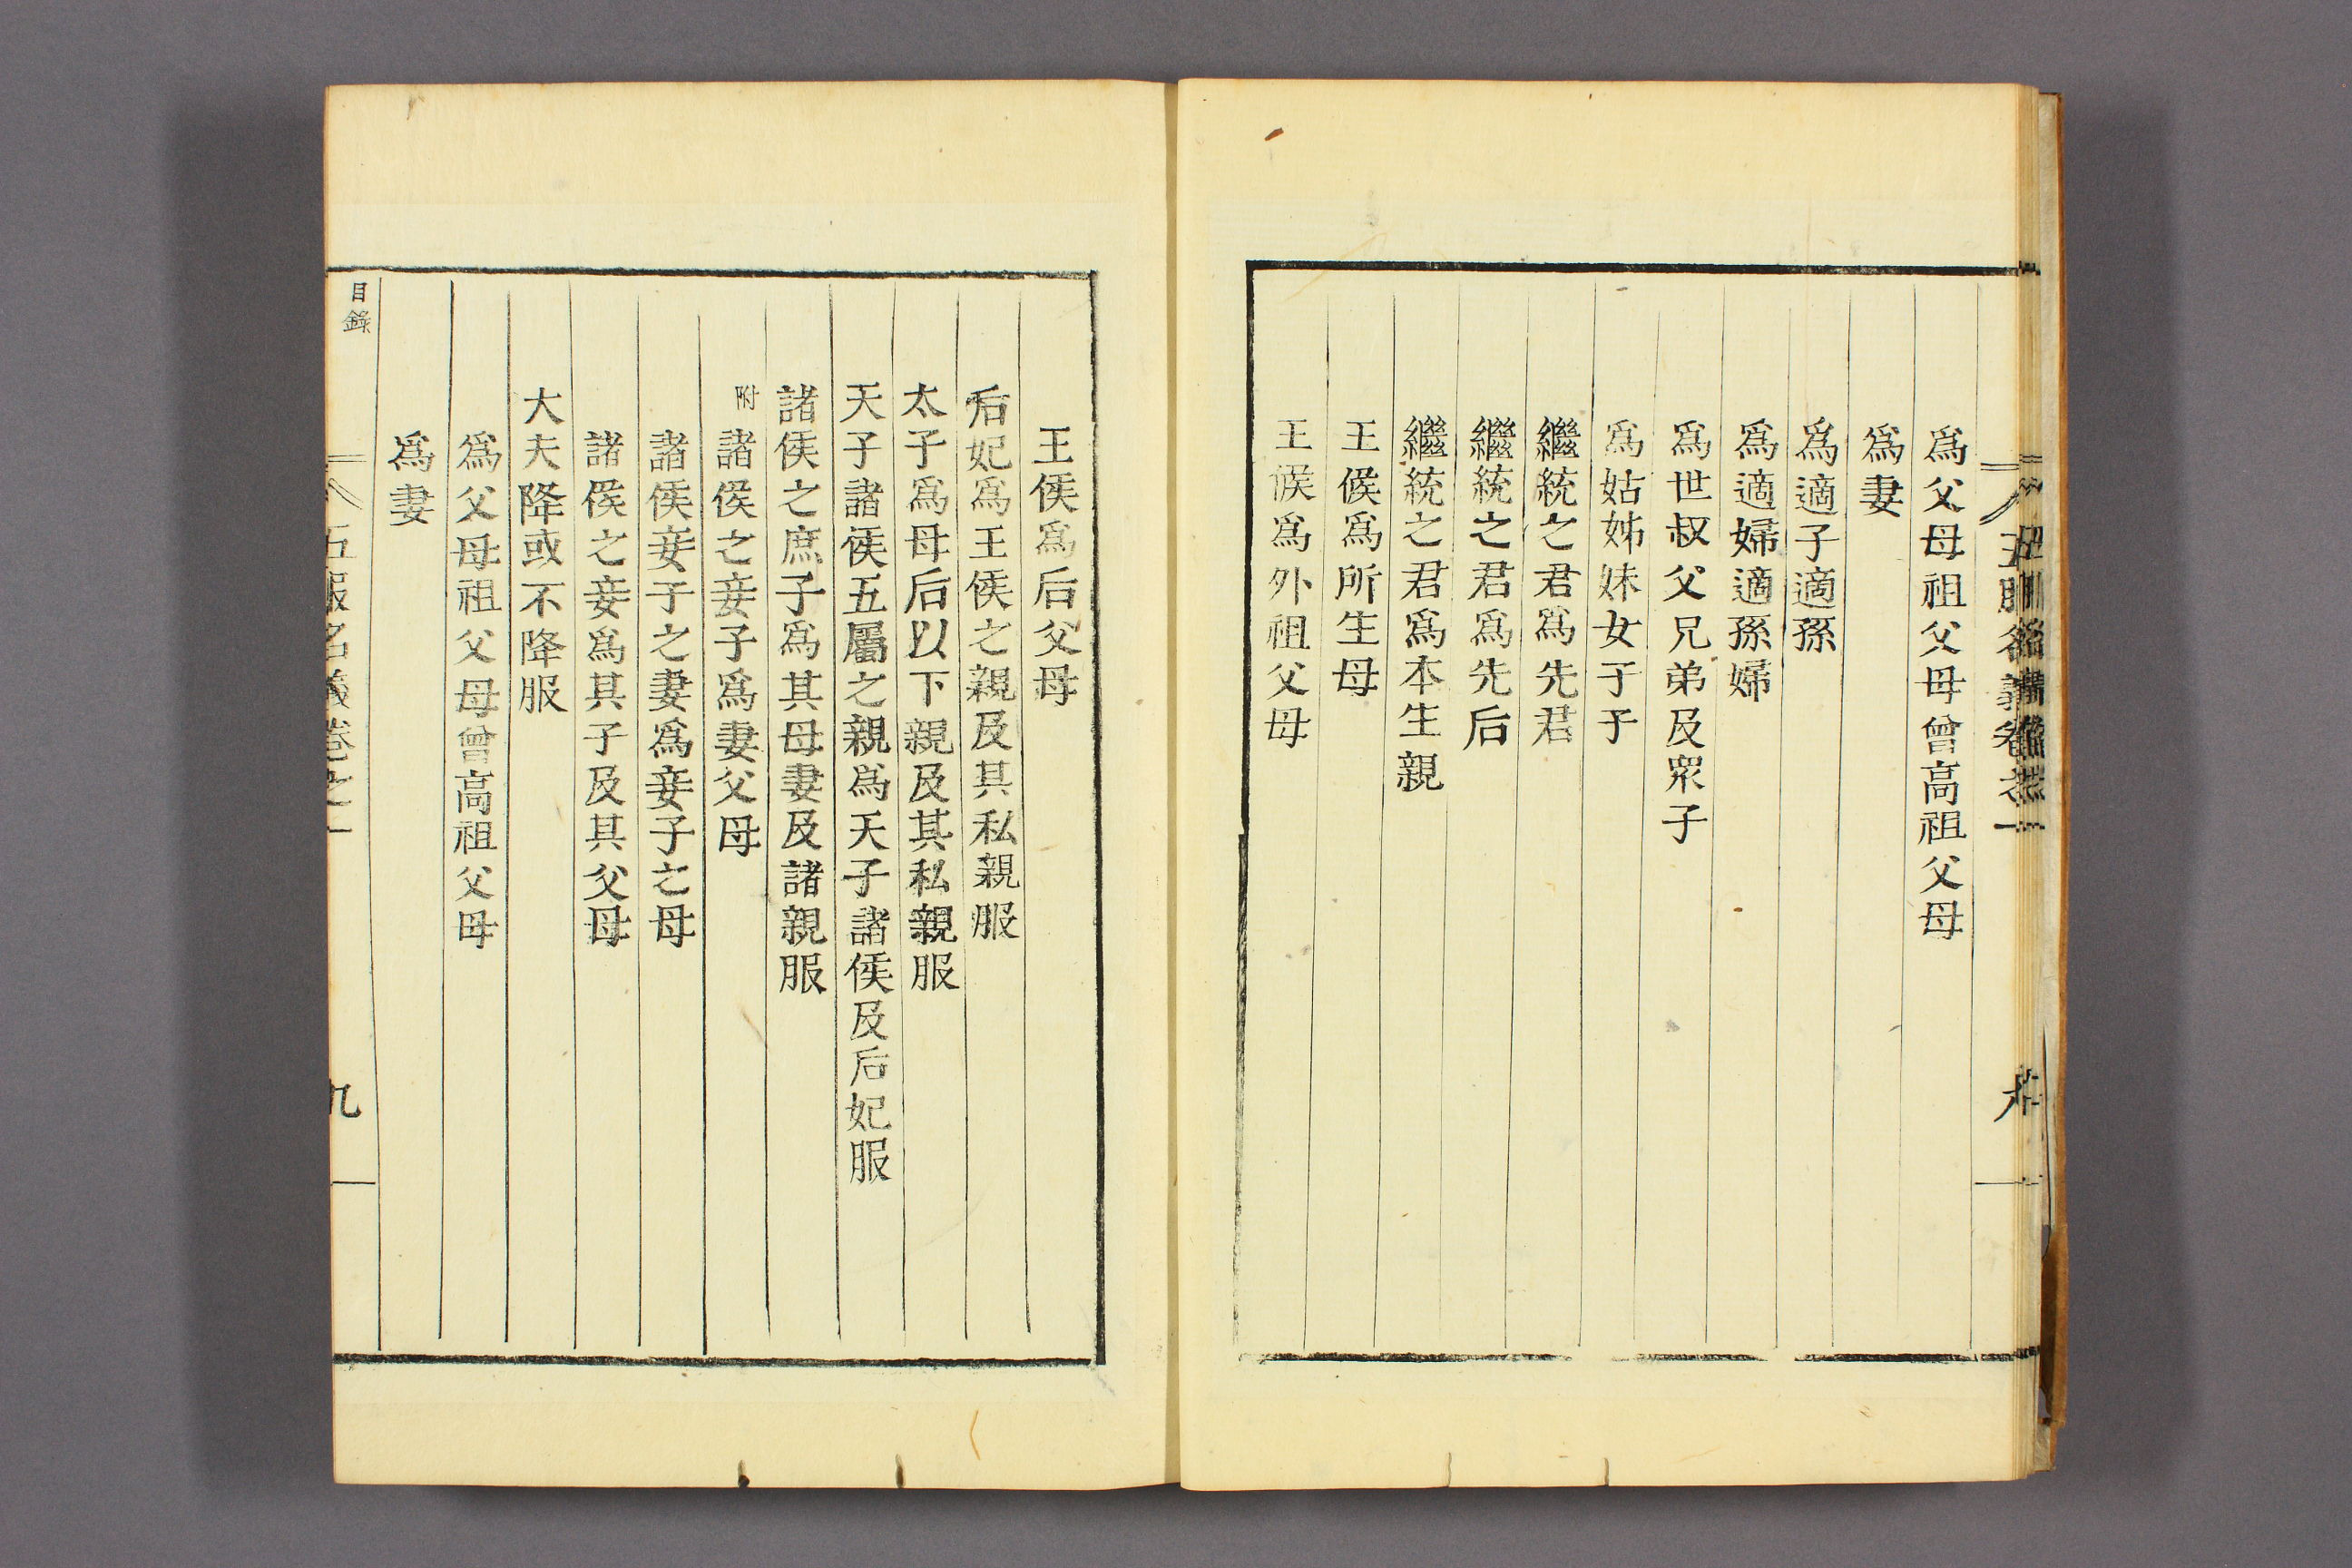 五服名義卷之一
爲父母祖父母曾高祖父母
爲妻
爲適子適孫
爲適婦適孫婦
爲世叔父兄弟及眾子
爲姑姊妹女子子
繼統之君爲先君
繼統之君爲先后
繼統之君爲本生親
王侯爲所生母
王侯爲外祖父母
王侯爲后父母
后妃爲王侯之親及其私親服
太子爲母后以下親及其私親服
天子諸侯五屬之親爲天子諸侯及后妃服
諸侯之庶子爲其母妻及諸親服
諸侯之妾子爲妻父母
諸侯妾子之妻爲妾子之母
諸侯之妾爲其子及其父母
大夫降或不降服
爲父母祖父母曾高祖父母
爲妻
目錄
五服名義卷之一
九